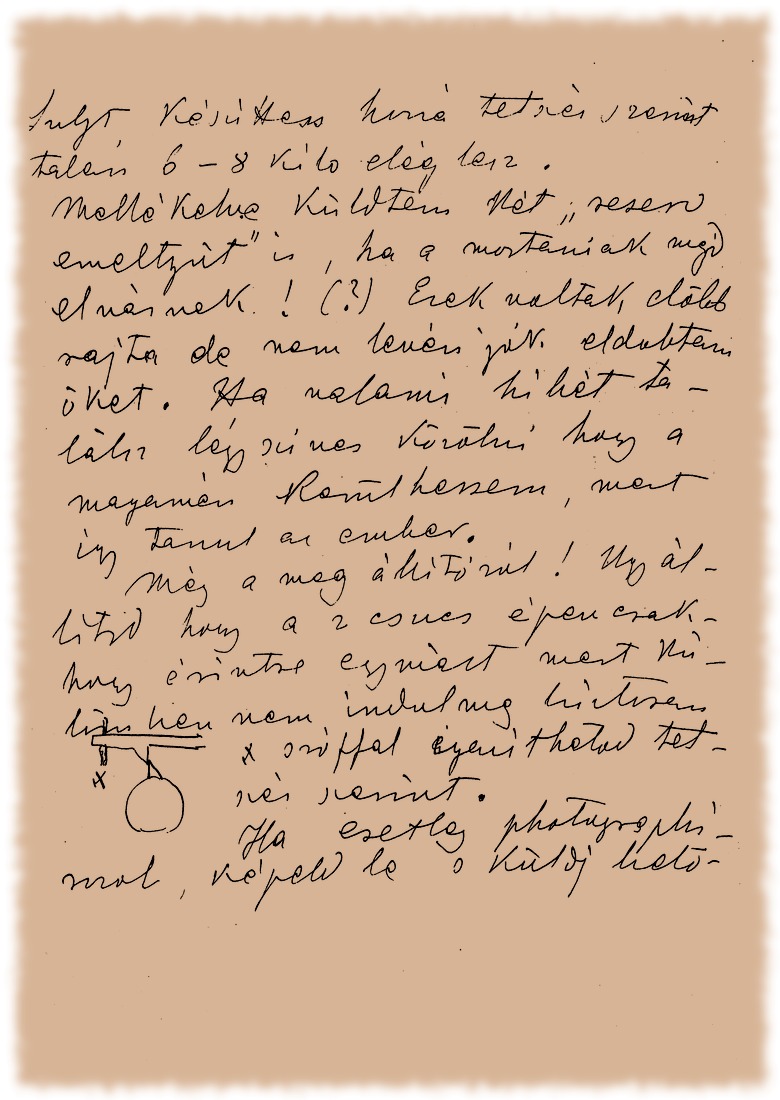 sulyt Készittess hozzá tetszés szerint
talán 6 – 8 Kiló elég lesz .
Mellékelve Küldtem Két „reserv
emeltyüt" is , ha a mostaniak majd
elvásnak ! (?) Ezek voltak előbb
rajta de nem levén jók eldobtam
őket . Ha valami hibát ta –
lálsz légy szives Közölni hogy a
magamén hassam , mert
igy tanul az ember.
Még a meg állitóról ! Ugy ál –
litsd hogy a 2 csucs épen csak –
hogy érintse egymást mert Kü –
lömben nem indul meg biztosan
x sróffal igazithatod tet –
szés szerint .
Ha esetleg photographi –
rozol , Képeld le s Küldj belő –
x